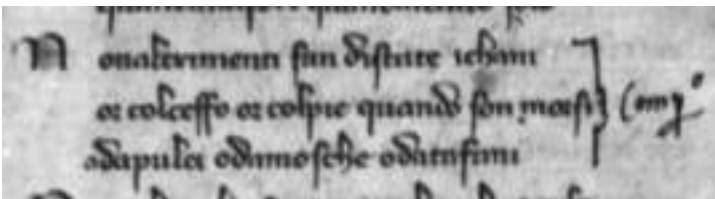 N onaltrimenti fan distate ichani
or colceffo or colpie quando son morsi comp°
odapulci odamosche odatafani